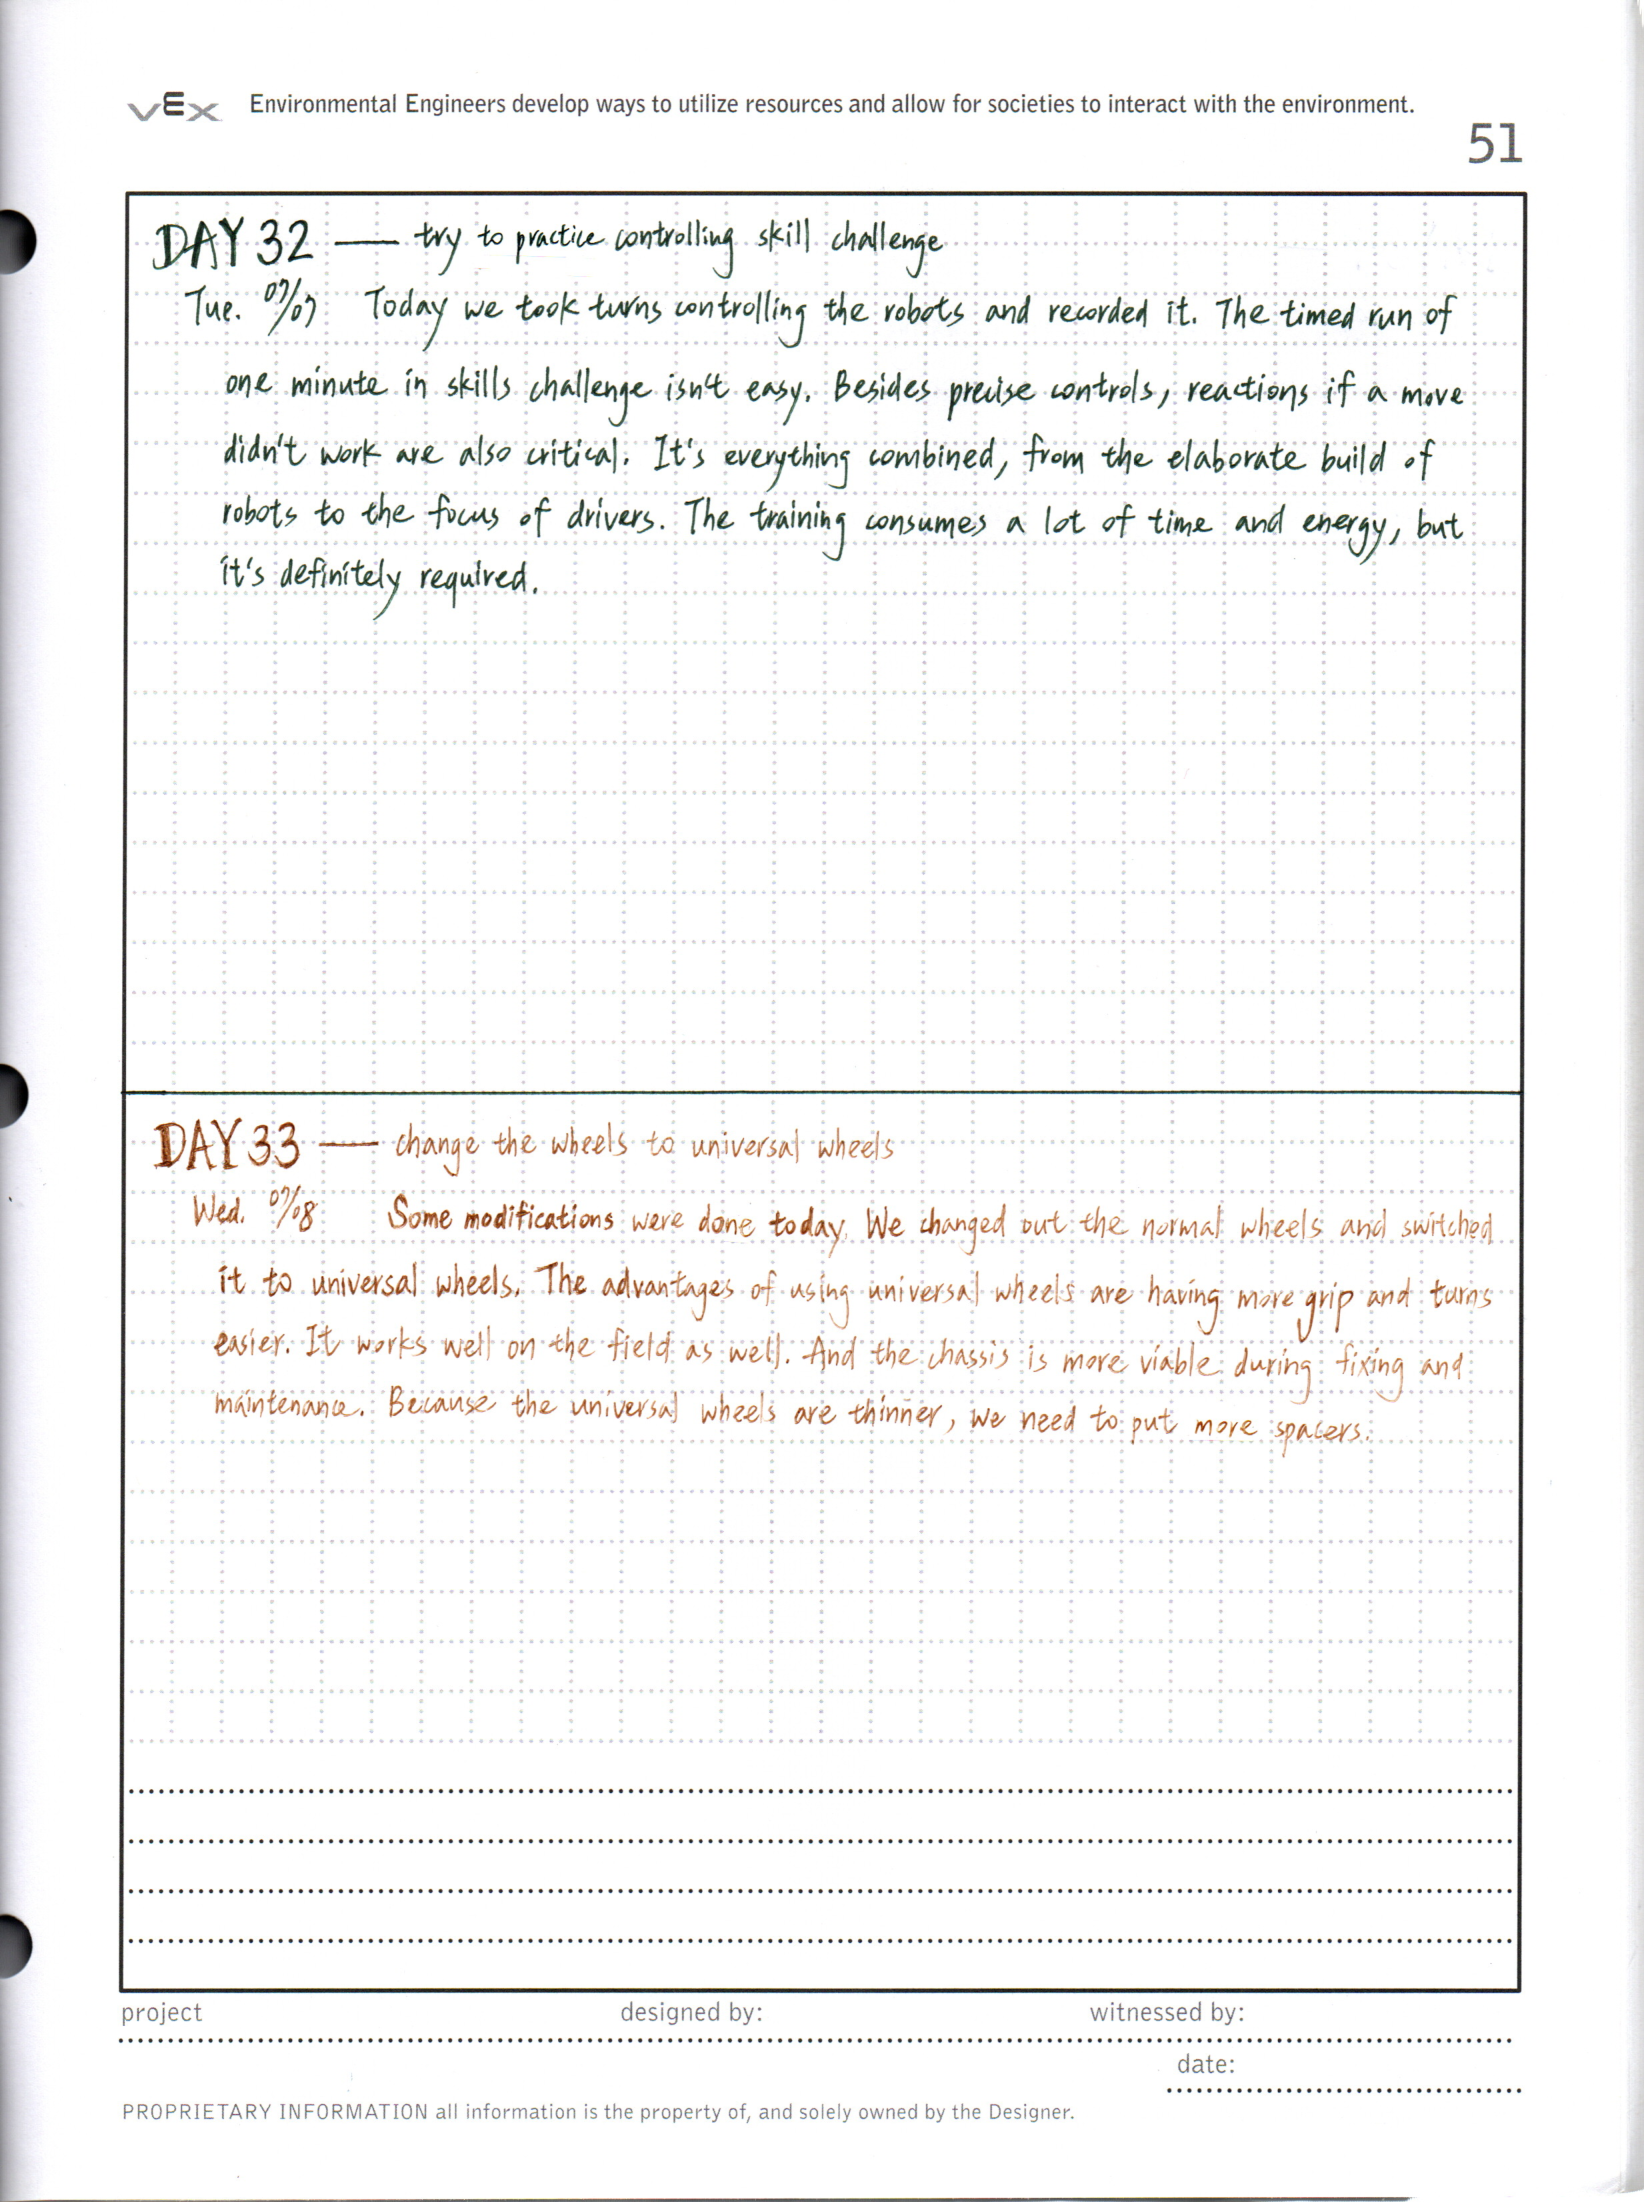 vEx Environmental Engineers develop ways to utilize resources and allow for societies to interact with the environment.
51
DAY 32 — try to practice controlling skill challenge
Tue. 07/07 Today we took turns controlling the robots and recorded it. The timed run of
one minute in skills challenge isn't easy. Besides precise controls, reactions if a move
didn't work are also critical. It's everything combined, from the elaborate build of
robots to the focus of drivers. The training consumes a lot of time and energy, but
it's definitely required.
DAY 33 — change the wheels to universal wheels
Wed. 07/08 Some modifications were done today. We changed out the normal wheels and switched
it to universal wheels. The advantages of using universal wheels are having more grip and turns
easier. It works well on the field as well. And the chassis is more viable during fixing and
maintenance. Because the universal wheels are thinner, we need to put more spacers.
project designed by: witnessed by:
date:
PROPRIETARY INFORMATION all information is the property of, and solely owned by the Designer.